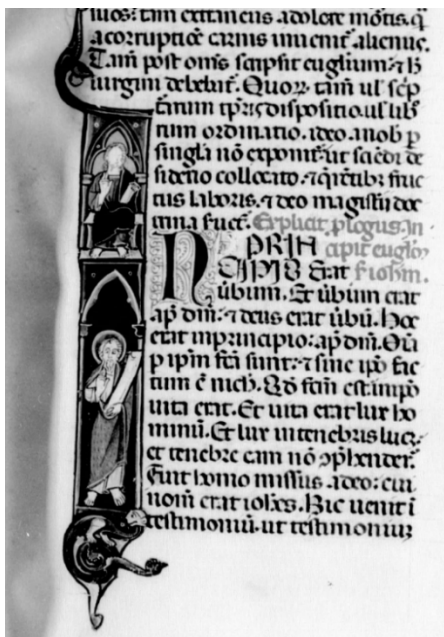 tuos: tam extraneus a dolore mortis. q̃
a corruptiõe carnis inuenit᷑ alienus.
Tam̃ post om̃s scripsit eug̃lium: ⁊ h̾
uirgini debebat᷑. Quoꝝ tam̃ ul̃ sc̃p
tarum tp̃ris dispositio. ul̃ lib
rum ordinatio. ideo. a nob̾ p
singl̃a nõ exponit᷑: ut sciẽdi de
siderio collocato. ⁊ q̃rẽtib᷑ fruc
tus laboris. ⁊ deo magist̃ii doc
trina s̃uet᷑. Explicit p̃logus. In
PRIN cipit eug̃liũ
CIPIO Erat s̃ ioh̃m.
ũbum. Et ũbum erat
ap̃ dm̃: ⁊ deus erat ũbũ. Hoc
erat in principio: ap̃ dm̃. Oĩa
p ip̃m fc̃a sunt: ⁊ sine ip̃o fac
tum ẽ nich̾. Qđ fc̃m est in ip̃o
uita erat. Et uita erat lux ho
minũ. Et lux in tenebris lucet᷑.
et tenebre eam nõ ɔp̃hender̃.
Fuit homo missus. a deo: cui
nom̃ erat ioh̃es. Hic uenit ĩ
testimoniũ. ut testimoniũ